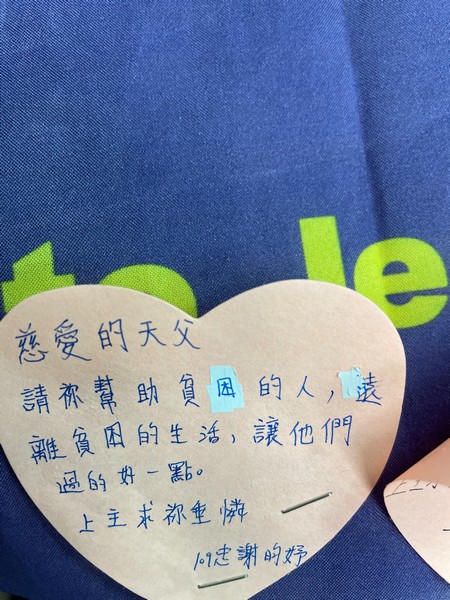 to le
慈愛的天父
請祢幫助貧困的人，遠
離貧困的生活，讓他們
過的好一點。
上主求祢垂憐
109忠謝的妤